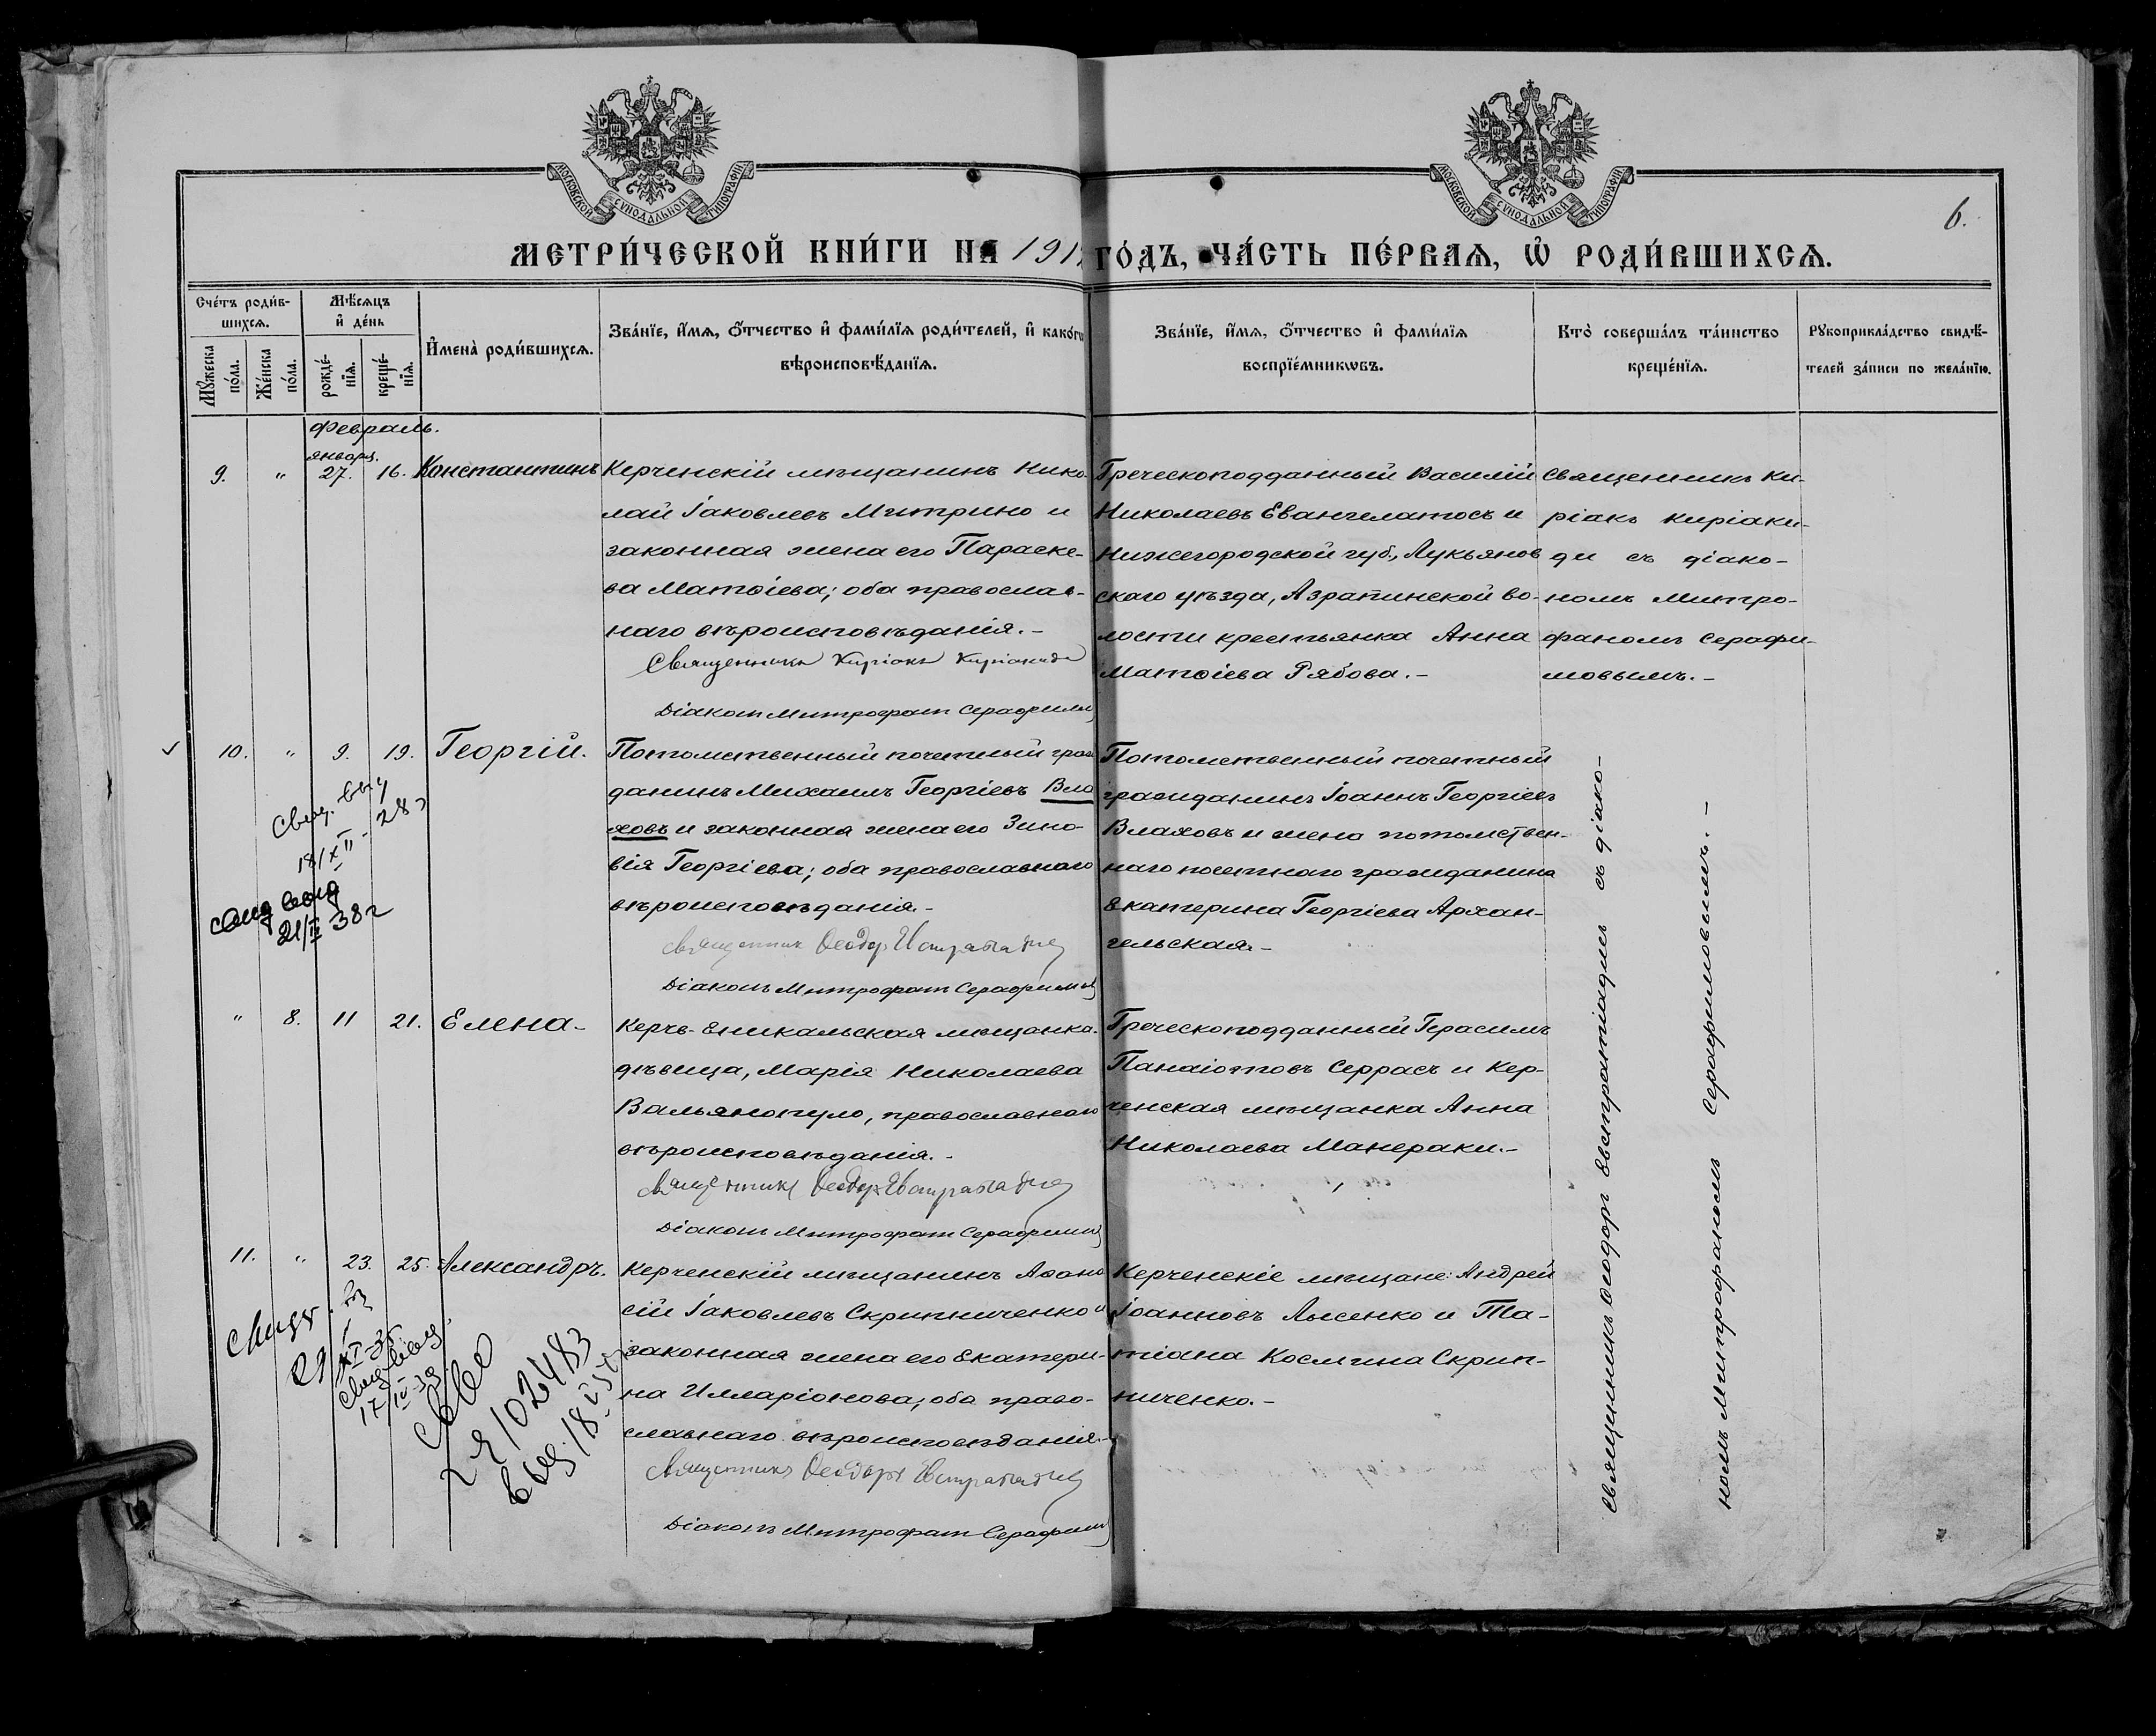 МОСКОВСКОЙ СѴНОДАЛЬНОЙ ТИПОГРАФІИ
МОСКОВСКОЙ СѴНОДАЛЬНОЙ ТИПОГРАФІИ
6.
МЕТРИ́ЧЕСКОЙ КНИ́ГИ НА 191 ГО́ДЪ, ЧА́СТЬ ПЕ́РВАѦ, Ѡ҆ РОДИ́ВШИХСѦ.
Сче́тъ роди́в-
шихсѧ.
Мꙋ́жеска
по́ла.
Же́нска
по́ла.
Мѣ́сѧцъ
и҆ де́нь
рожде́-
нїѧ.
креще́-
нїѧ.
И҆мена̀ роди́вшихсѧ.
Зва́нїе, и҆́мѧ, ѻ҆́тчество и҆ фами́лїѧ роди́телей, и҆ како́гѡ
вѣроисповѣ́данїѧ.
Зва́нїе, и҆́мѧ, ѻ҆́тчество и҆ фами́лїѧ
воспрїе́мникѡвъ.
Кто̀ соверша́лъ та́инство
креще́нїѧ.
Рꙋкоприкла́дство свидѣ́-
телей за́писи по жела́нїю.
Февраль.
января.
9. " 27. 16. Константинъ
Керченскій мѣщанинъ Нико-
лай Іаковлевъ Митрино и
законная жена его Параске-
ва Матѳіева; оба православ-
наго вѣроисповѣданія.-
Священникъ Киріакъ Киріакиди
Діаконъ Митрофанъ Серафимов
Греческоподданный Василій
Николаевъ Евангелатосъ и
Нижегородской губ., Лукьянов
скаго уѣзда, Азрапинской во-
лости крестьянка Анна
Матѳіева Рябова.-
Священникъ Ки-
ріакъ Киріаки-
ди съ діако-
номъ Митро-
фаномъ Серафи-
мовымъ.-
10. " 9. 19. Георгій.
Потомственный почетный граж
данинъ Михаилъ Георгіевъ Вла
ховъ и законная жена его Зино-
вія Георгіева; оба православнаго
вѣроисповѣданія.-
Священник Ѳеодор Евстратиадис
Діаконъ Митрофанъ Серафимов
Потомственный почетный
гражданинъ Іоаннъ Георгіевъ
Влаховъ и жена потомствен-
наго почетнаго гражданина
Екатерина Георгіева Архан-
гельская.-
18/XII - 28 г
21/II 38 г
" 8. 11 21. Елена-
Керчь-Еникальская мѣщанка-
дѣвица, Марія Николаева
Вальянопуло, православнаго
вѣроисповѣданія.-
Священникъ Ѳеодор Евстратиадис
Діаконъ Митрофанъ Серафимов
Греческоподданный Герасимъ
Панаіотовъ Серрасъ и Кер-
ченская мѣщанка Анна
Николаева Манераки.-
11. " 23. 25. Александръ.
Керченскій мѣщанинъ Аѳана
сій Іаковлевъ Скрипниченко и
законная жена его Екатери-
на Илларіонова; оба право-
славнаго вѣроисповѣданія.-
Священникъ Ѳеодоръ Евстратиадис
Діаконъ Митрофанъ Серафимов
Керченскіе мѣщане: Андрей
Іоанновъ Лысенко и Та-
тіана Космина Скрип-
ниченко.-
29/XI-35
17/IV-39
1102483
Священникъ Ѳеодоръ Евстратіадисъ съ діако-
номъ Митрофаномъ Серафимовымъ.-